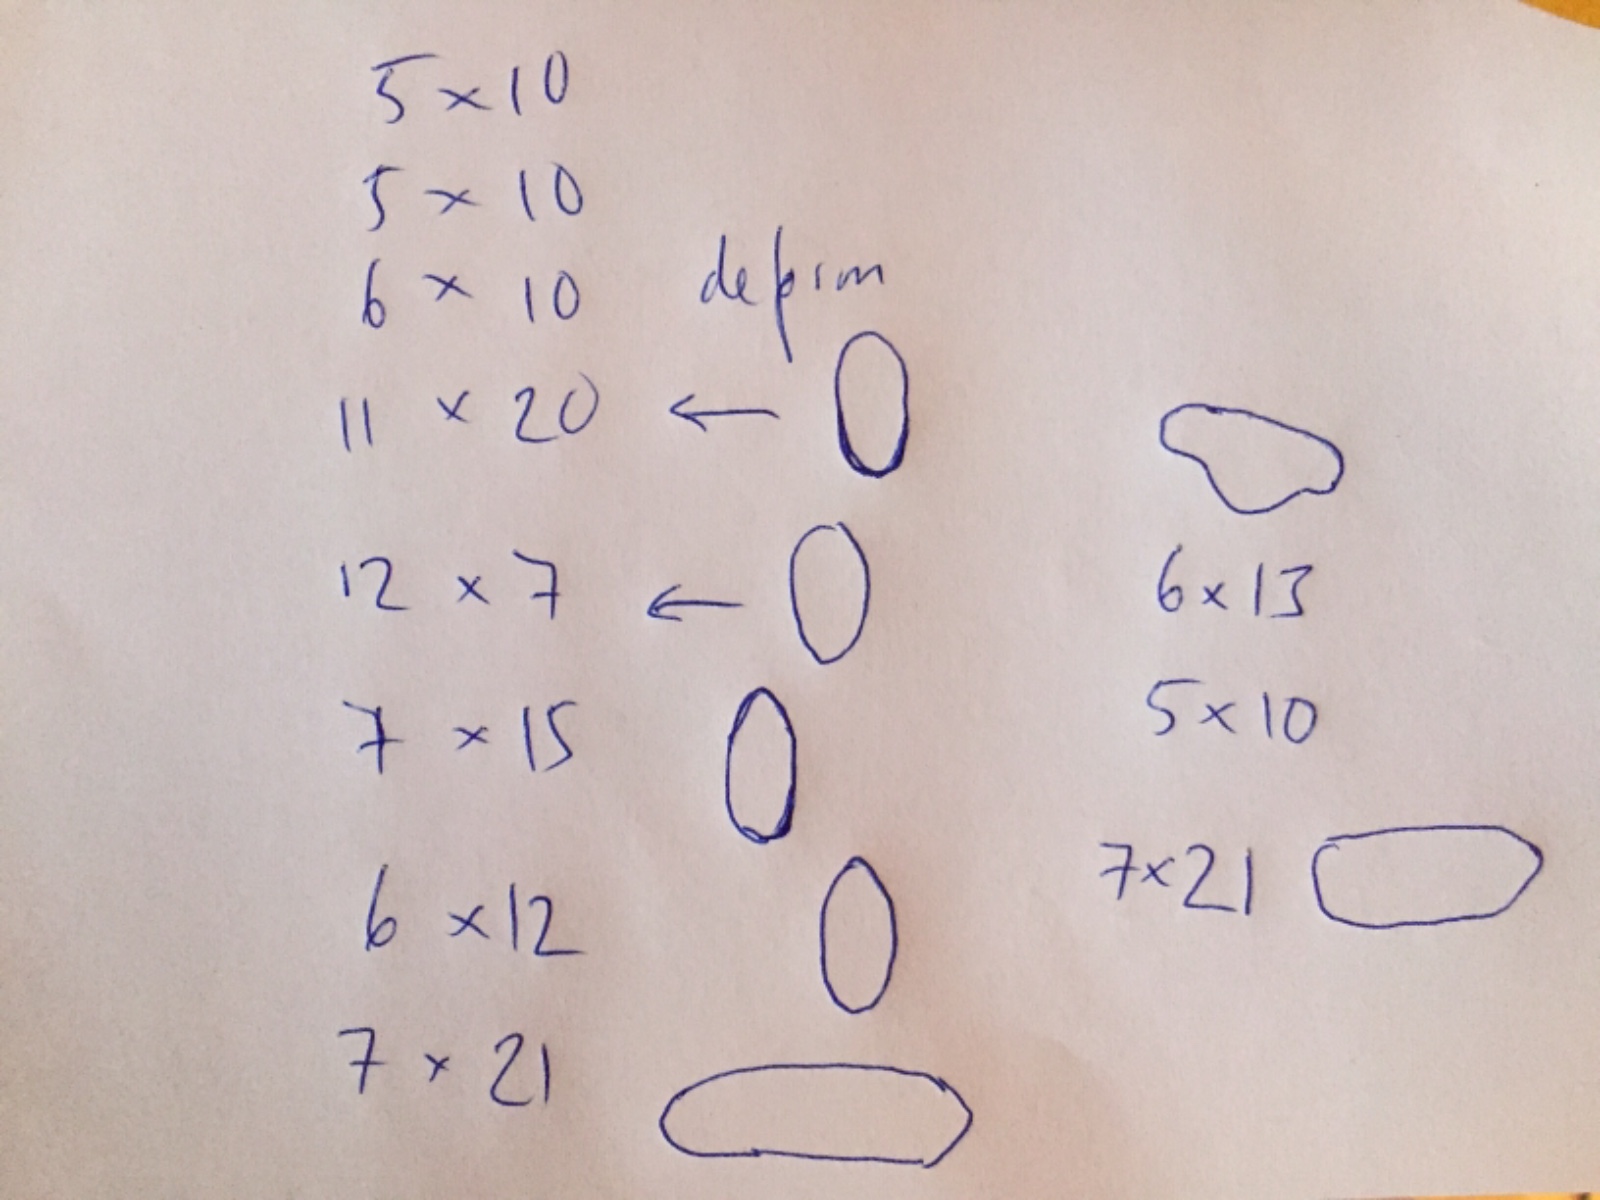 5 × 10
5 × 10
6 × 10
11 × 20 ←
12 × 7 ←
7 × 15
6 × 12
7 × 21
6 × 13
5 × 10
7 × 21